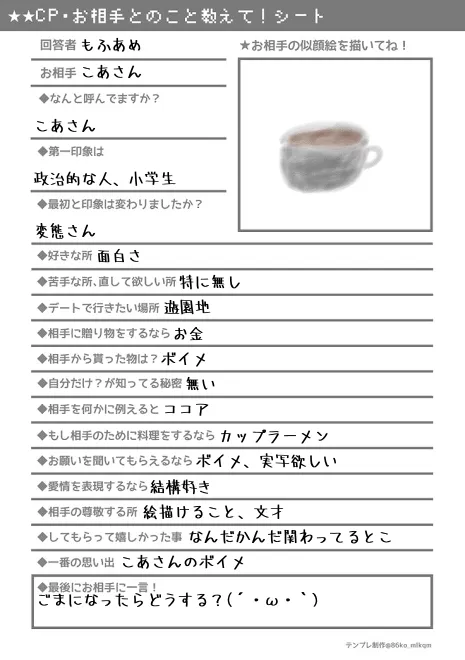 ★★CP・お相手とのこと教えて！シート
回答者 もふあめ
★お相手の似顔絵を描いてね！
お相手 こあさん
◆なんと呼んでますか？
こあさん
◆第一印象は
政治的な人、小学生
◆最初と印象は変わりましたか？
変態さん
◆好きな所 面白さ
◆苦手な所、直して欲しい所 特に無し
◆デートで行きたい場所 遊園地
◆相手に贈り物をするなら お金
◆相手から貰った物は？ ボイメ
◆自分だけ？が知ってる秘密 無い
◆相手を何かに例えると ココア
◆もし相手のために料理をするなら カップラーメン
◆お願いを聞いてもらえるなら ボイメ、実写欲しい
◆愛情を表現するなら 結構好き
◆相手の尊敬する所 絵描けること、文才
◆してもらって嬉しかった事 なんだかんだ関わってるとこ
◆一番の思い出 こあさんのボイメ
◆最後にお相手に一言！
ごまになったらどうする？(´・ω・｀)
テンプレ制作@86ko_mlkqm